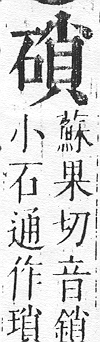 磒
蘇果切音鎖
小石通作瑣